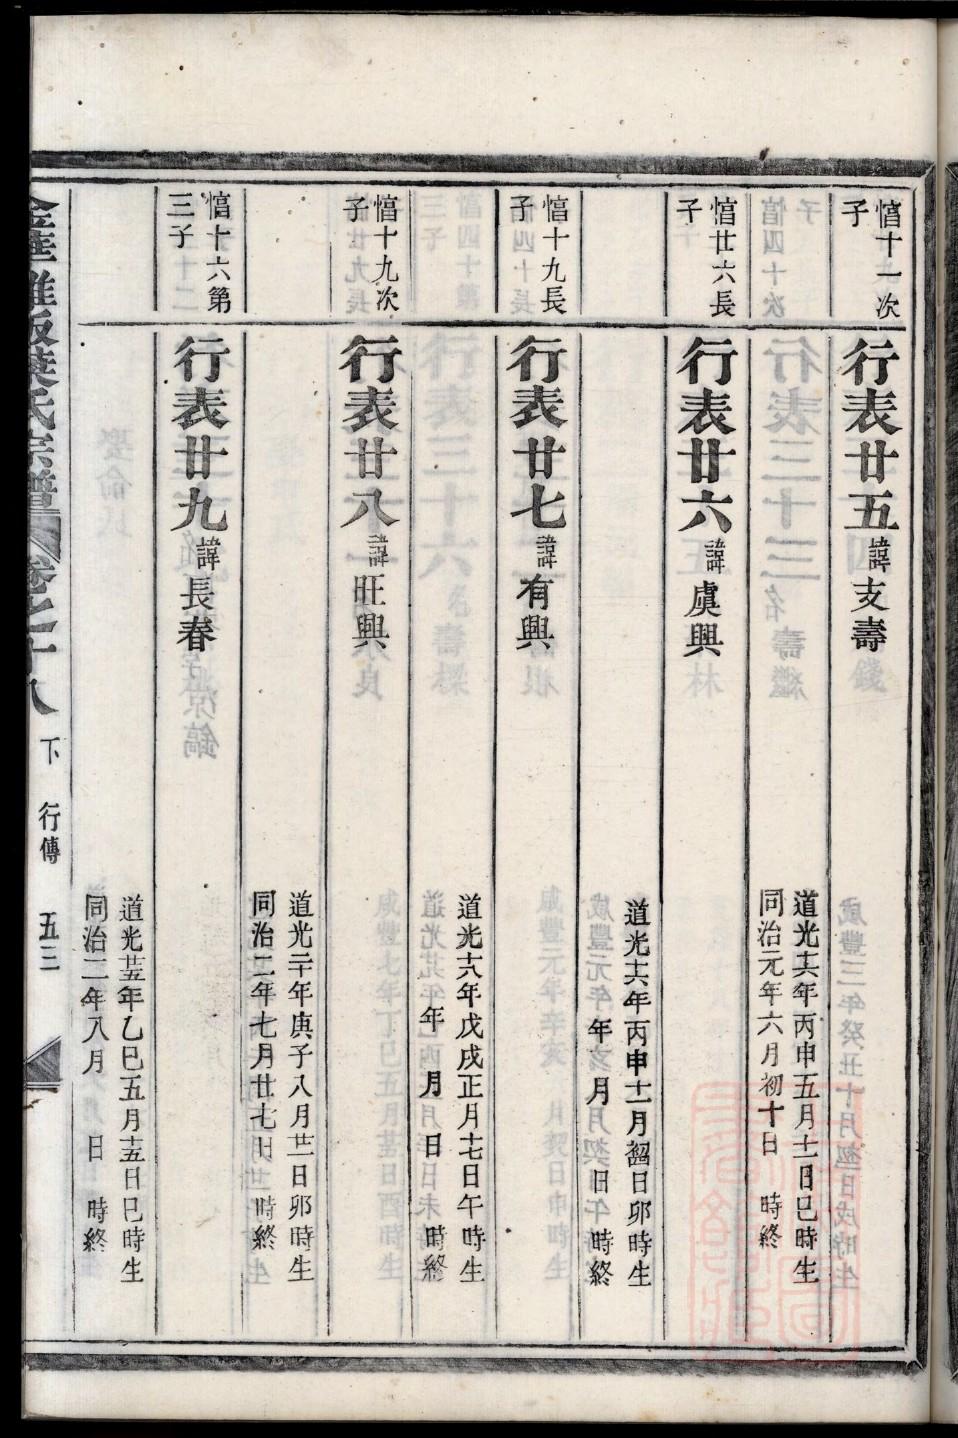 愊十一次
子
行表廿五諱支壽
道光十六年丙申五月十二日巳時生
同治元年六月初十日 時終
愊廿六長
子
行表廿六諱虞興
道光十六年丙申十一月初四日卯時生
年 月 日 時終
愊十九長
子
行表廿七諱有興
道光十八年戊戌正月十七日午時生
年 月 日 時終
愊十九次
子
行表廿八諱旺興
道光二十年庚子八月廿二日卯時生
同治二年七月廿七日 時終
愊十六第
三子
行表廿九諱長春
道光廿五年乙巳五月十五日巳時生
同治二年八月 日 時終
葉氏宗譜 卷之十八 下 行傳 五三